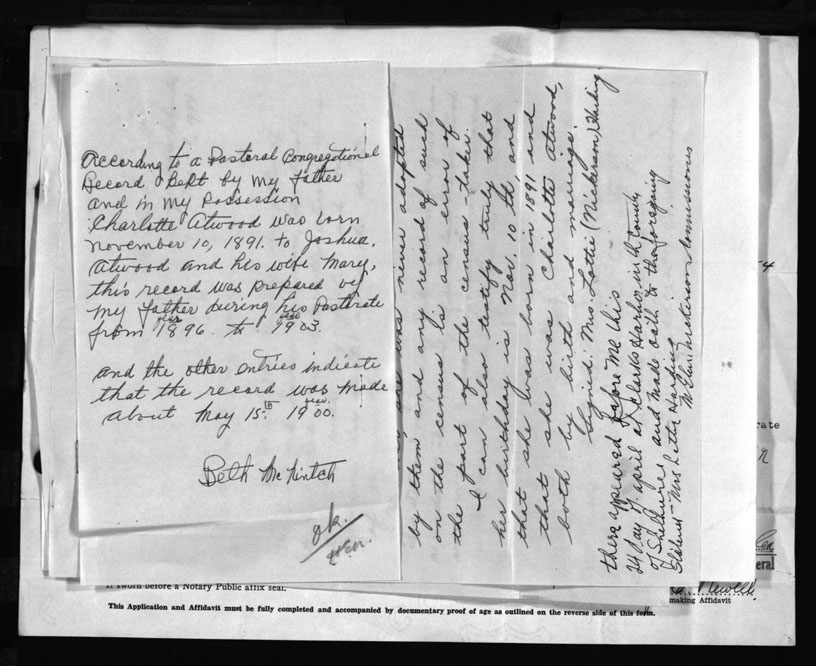 According to a Pastoral Congregational
Record Kept by My Father
and in My Possession
Charlotte Atwood was born
November 10, 1891. to Joshua.
Atwood and his wife Mary,
this record was prepared by
My father during his Pastorate
from year 1896. to year 1903.
and the other entries indicate
that the record was made
about May 15th year 1900.
Beth McKintch
ok.
was never adopted
by them and any record of such
on the census is an error of
the part of the census-taker.
I can also testify truly that
her birthday is Nov. 10th, and
that she was born in 1891 and
that she was Charlotte Atwood,
both by birth and marriage.
Signed: Mrs. Lottie (Nickerson) Harding
there appeared before Me this
24 day of april at Clarks Harbor in the County
of Shelburne and made oath to the foregoing
Mrs Lettie Harding
Nickerson Commissioner
4
ate
n
eral
If sworn before a Notary Public affix seal.
making Affidavit
This Application and Affidavit must be fully completed and accompanied by documentary proof of age as outlined on the reverse side of this form.